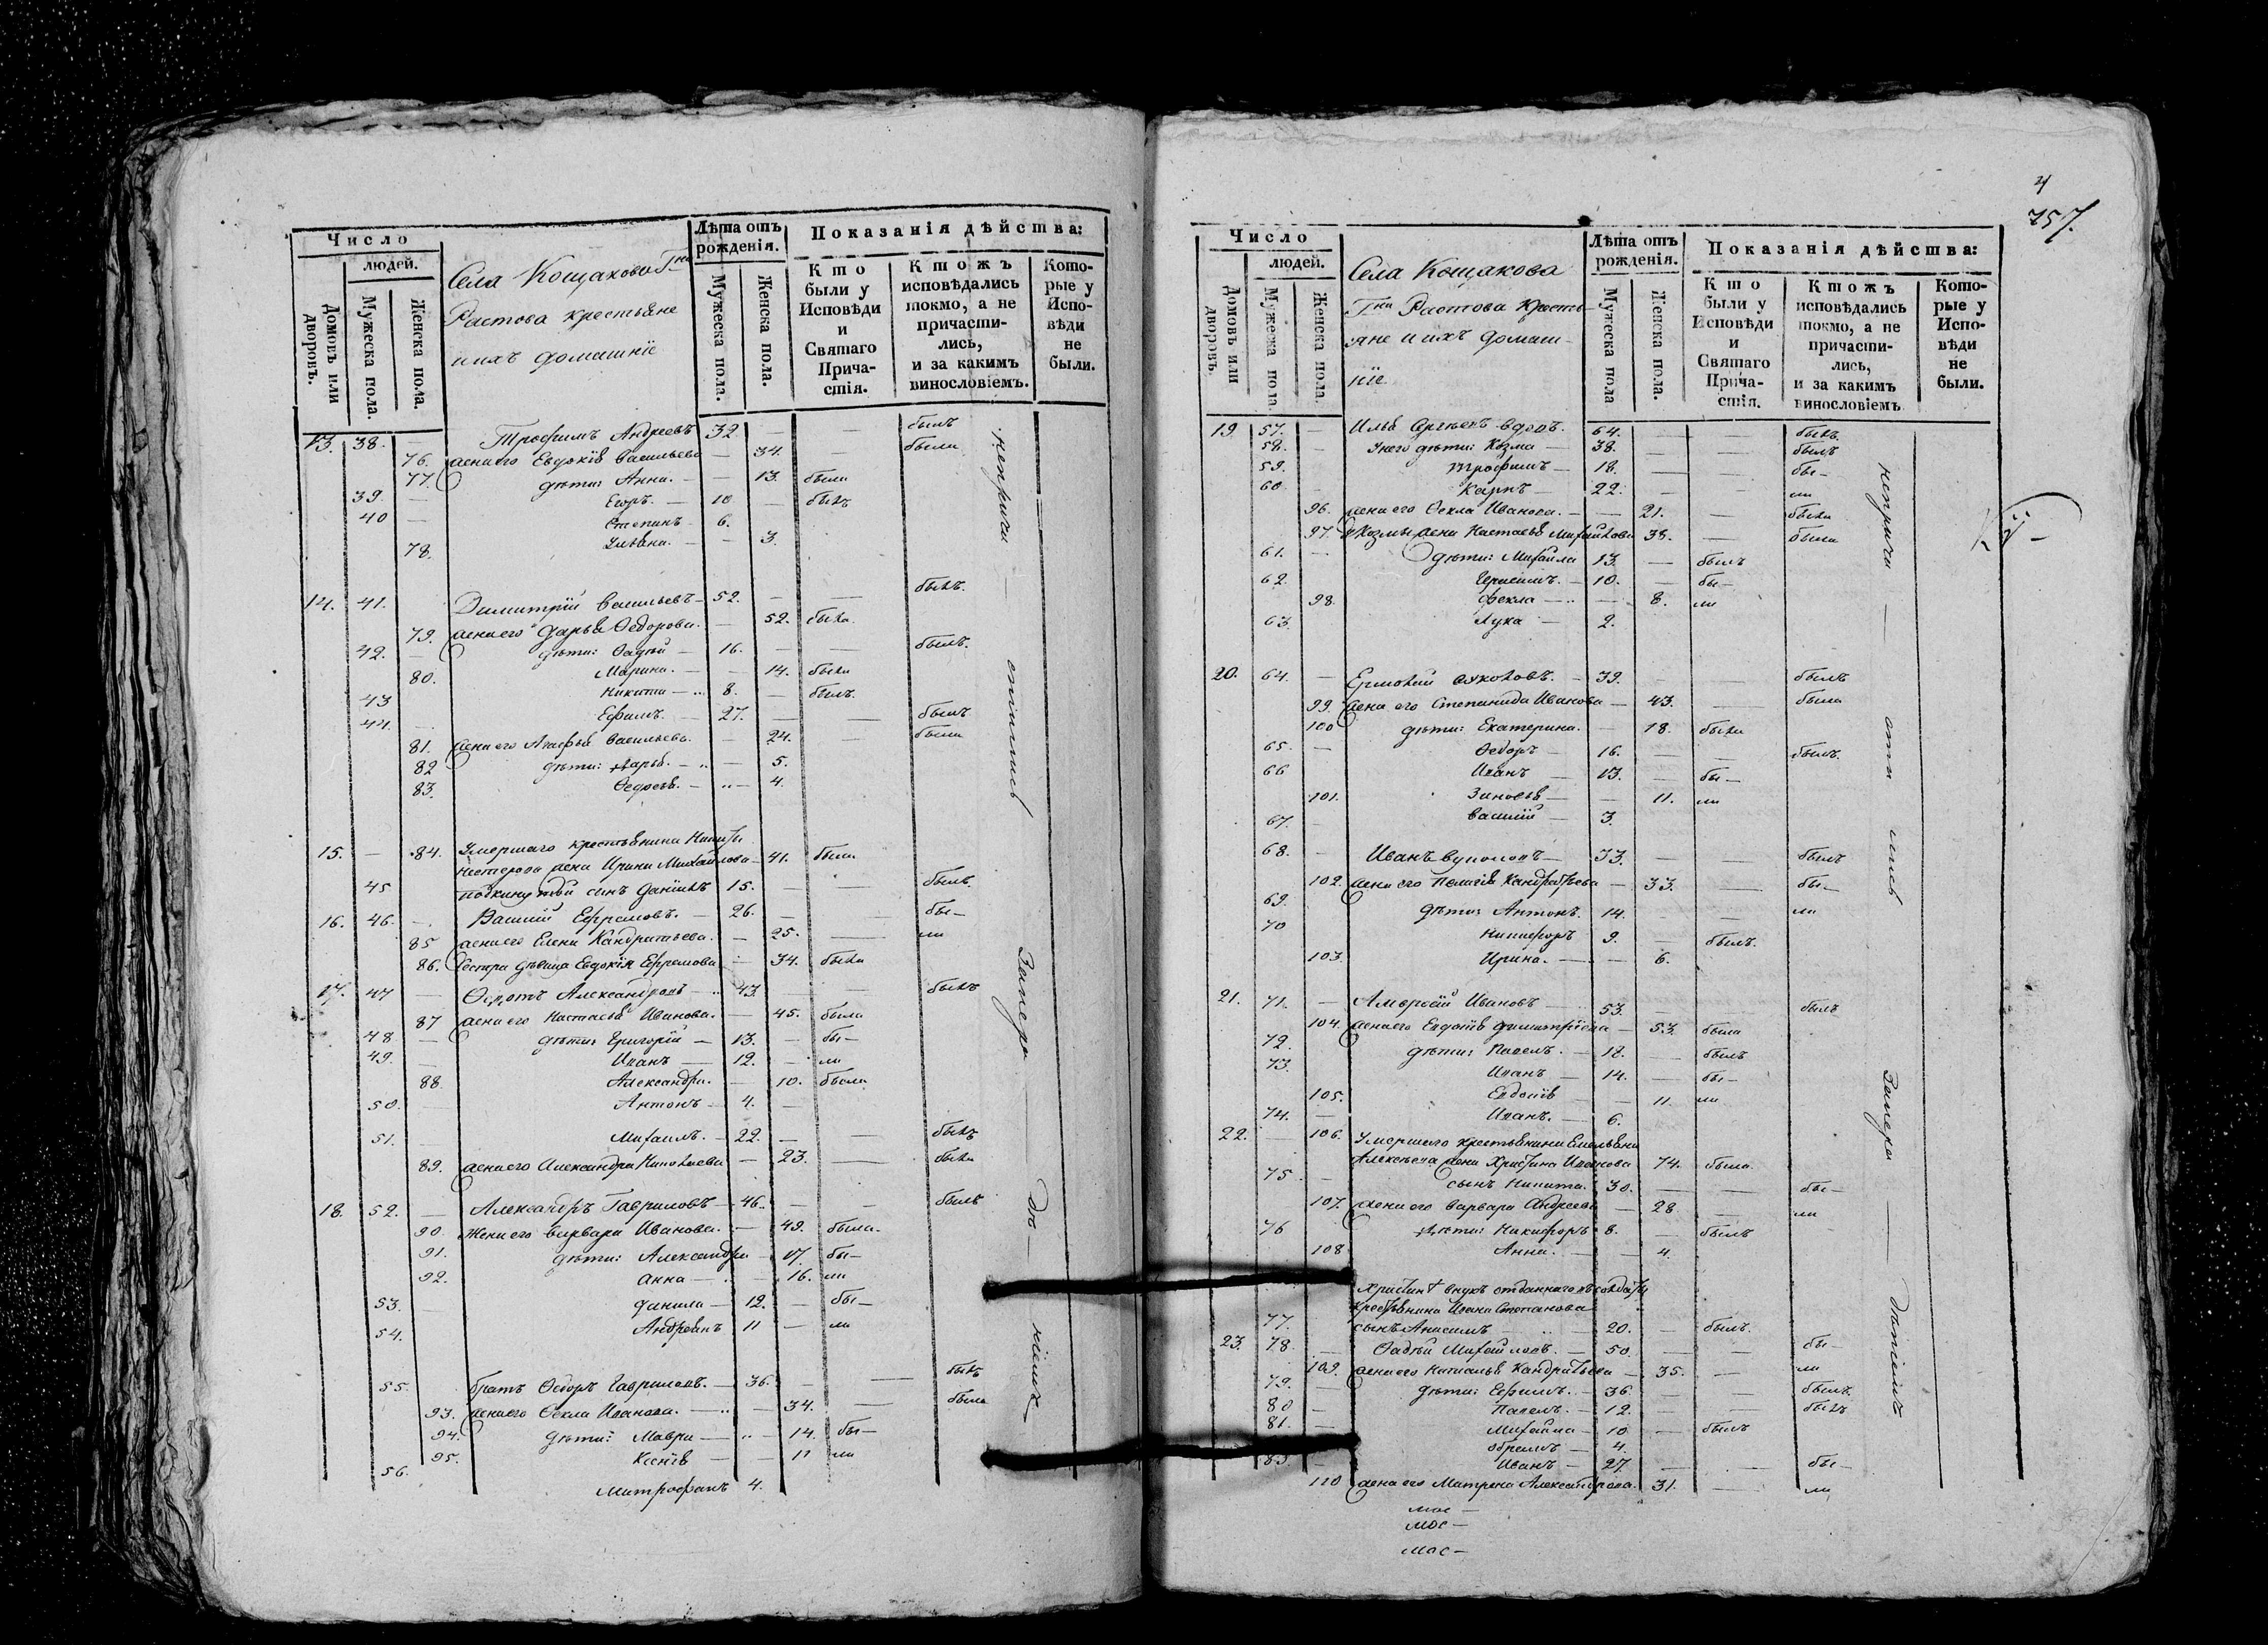 Число
людей.
Домовъ или дворовъ.
Мужеска пола.
Женска пола.
Села Кощакова Гна
Растова крестьяне
и ихъ домашніе
Лѣта отъ рожденія.
Мужеска пола.
Женска пола.
Показанія дѣйства:
Кто были у Исповѣди и Святаго Причастія.
Ктожъ исповѣдались токмо, а не причастились, и за какимъ винословіемъ.
Которые у Исповѣди не были.
13. 38. — Трофимъ Андреевъ 32 — — былъ
76. жена его Евдокія Васильева — 34. — была
77. дѣти: Анна. — — 13. была
39. — Егоръ. — 10 — былъ
40 — Степанъ — 6.
78. Ульяна. — — 3.
14. 41. Димитрій Васильевъ — 52. — — былъ.
79. жена его Дарья Ѳедорова. — 52. была.
42. дѣти: Ѳадей — 16. — — былъ.
80. Марина. — — 14. была
43 Никита — 8. — былъ
44. — Ефимъ. — 27. — — былъ
81. жена его Агафья Васильева. — 24. — была
82 дѣти: Дарья. — — 5.
83. Ѳедосья. — — 4.
15. — 84. Умершаго крестьянина Никиты
Нестерова жена Ирина Михайлова — 41. была
45 подкинутой сынъ Даніилъ 15. — — былъ.
16. 46. — Василій Ефремовъ. — 26. — — бы-
85 жена его Елена Кандратьева. — 25. — ли
86. Сестра дѣвица Евдокія Ефремова — 34. была
17. 47 — Ѳедотъ Александровъ — 43. — — былъ
87 жена его Настасья Иванова. — 45. была
48 — дѣти: Григорій — 13. — бы-
49. — Иванъ — 12. — ли
88 Александра. — 10. была
50. — Антонъ — 4. —
51. — Михаилъ. — 22. — — былъ
89. жена его Александра Николаева — 23. — была
18. 52. — Александръ Гавриловъ — 46. — — былъ
90. Жена его Варвара Иванова. — 49. была.
91. дѣти: Александра — 17. бы-
92. Анна — — 16. ли
53. — Данила — 12. — бы-
54. Андреянъ 11 — ли
55. братъ Ѳедоръ Гавриловъ. — 36. — — былъ
93. жена его Ѳекла Иванова. — — 34. — была
94. дѣти: Мавра — — 14. бы-
95. Ксенія — — 11 ли
56. Митрофанъ 4.
неприча — стились Заперо — до нихъ
757.
Число
людей.
Домовъ или дворовъ.
Мужеска пола.
Женска пола.
Села Кощакова
Гна Растова Кресть-
яне и ихъ домаш-
ніе.
Лѣта отъ рожденія.
Мужеска пола
Женска пола.
Показанія дѣйства:
Кто были у Исповѣди и Святаго Причастія.
Ктожъ исповѣдались токмо, а не причастились, и за какимъ винословіемъ
Которые у Исповѣди не были.
19. 57. — Илья Сергѣевъ вдовъ. 64. — — былъ.
58. — У него дѣти: Козма — 38. — — былъ
59. Трофимъ — 18. — бы-
60 — Карпъ — 22. — — ли
96. жена его Ѳекла Иванова. — — 21. — была
97. у Козмы жена Настасья Михайлова 38. — была
61. — дѣти: Михайла 13. — былъ
62. Герасимъ. — 10. — бы-
98. Фекла — — 8. ли
63. Лука — 2.
20. 64. — Ермолай Яковлевъ. — 39. — — былъ
99. жена его Степанида Иванова — 43. — была
100 дѣти: Екатерина. — 18. была
65. — Ѳедоръ — 16. — — былъ.
66 Иванъ — 13. — бы-
101. Зиновья — — 11. ли
67. — Василій — 3.
68. — Иванъ — 33. — — былъ
102. жена его Пелагія Кандратьева — 33. — бы-
69. дѣти: Антонъ. 14. — — ли
70 Никифоръ 9. — былъ.
103. Ирина. — — 6.
21. 71. — Амвросій Ивановъ — 53. — былъ
104. жена его Евдокія Димитріева — 53. была
72. дѣти: Павелъ. — 18. — былъ
73. Иванъ — 14. — бы-
105. Евдокія — — 11. ли
74. — Иванъ. — 6.
22. — 106. Умершаго крестьянина Емельяна
Алексѣева жена Христина Иванова 74. была.
75. — сынъ Никита. 30. — — бы-
107. жена его Варвара Андреева — 28 — ли
76 дѣти: Никифоръ 8. — былъ
108 Анна. — — 4.
Христины внукъ отданнаго въ солдаты
крестьянина Ивана Степанова
77. сынъ Анисимъ — 20. — былъ.
23. 78. — Ѳадей Михайловъ. — 50. — — бы-
109. жена его Наталья Кандратьева — 35. — ли
79. дѣти: Ефимъ. — 36. — — былъ.
80 — Павелъ. — 12. — — былъ
81. — Михайла — 10. — былъ
Абрамъ — 4.
83. — Иванъ — 27. — — бы-
110 жена его Матрена Александрова. 31. — ли
неприча — сти лись Заперо — даніимъ